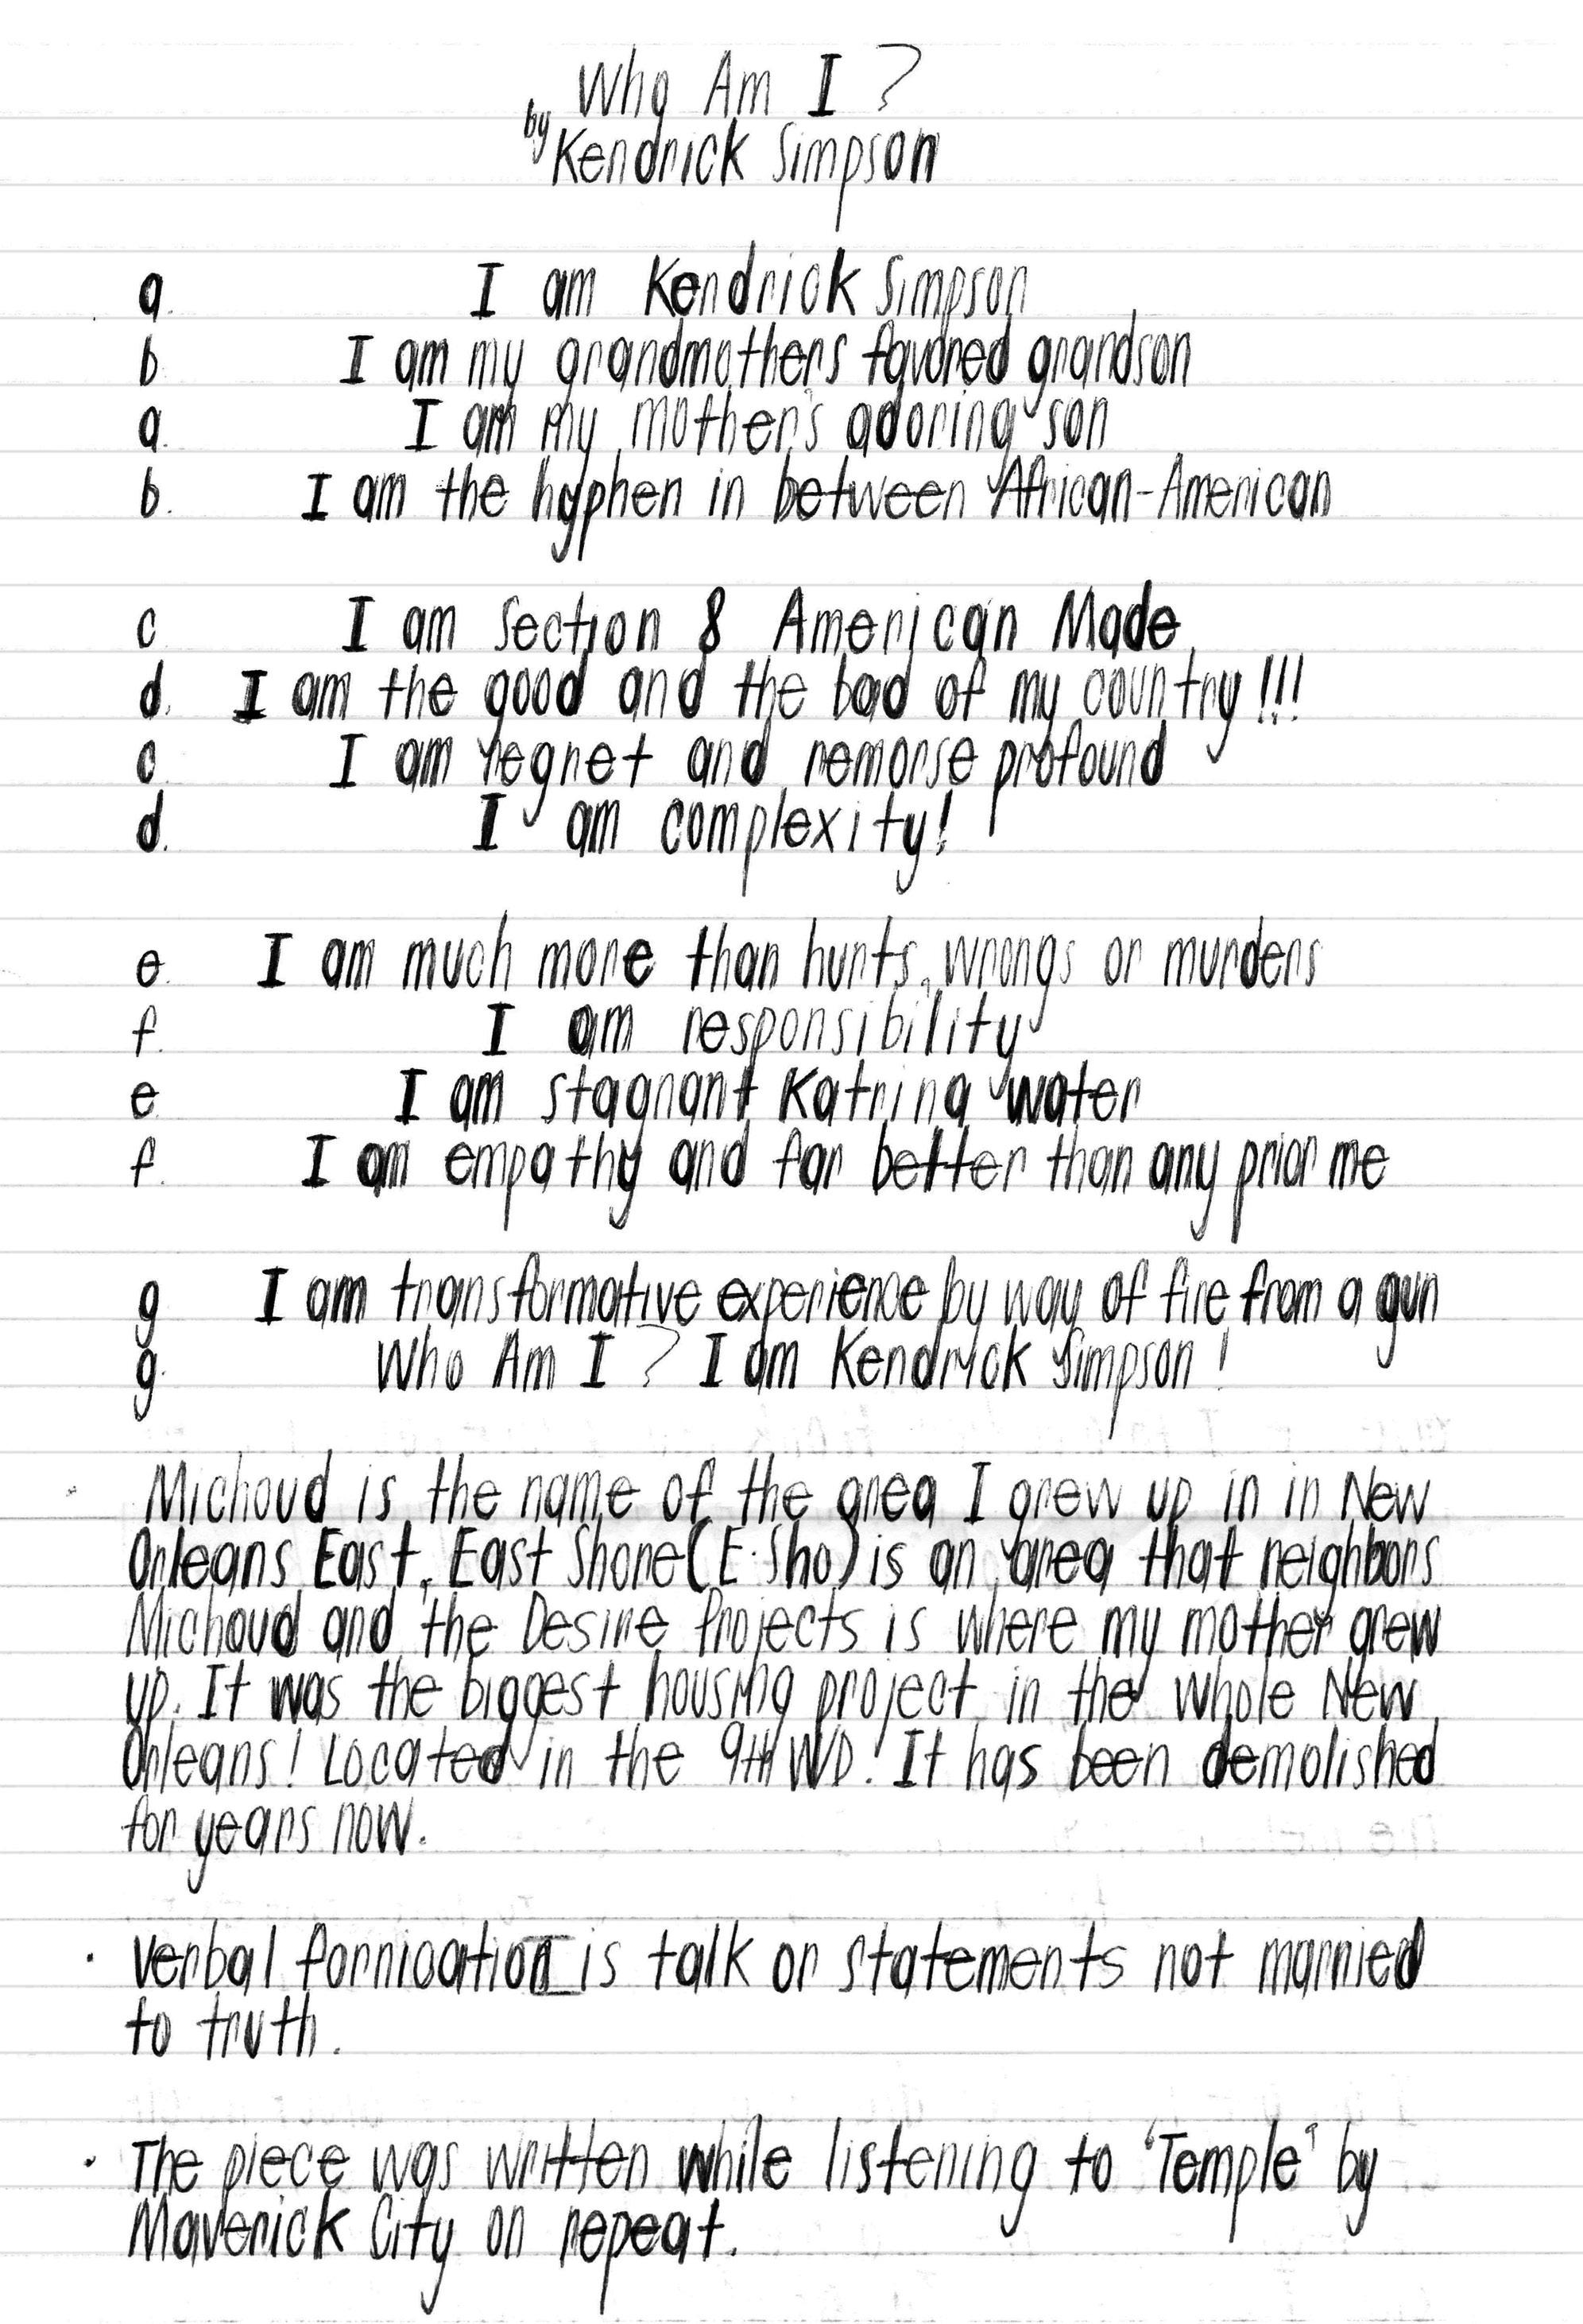 Who Am I?
by
Kendrick Simpson
a. I am Kendrick Simpson
b. I am my grandmothers favored grandson
a. I am my mother's adoring son
b. I am the hyphen in between African-American
c I am Section 8 American Made
d. I am the good and the bad of my country!!!
c. I am regret and remorse profound
d. I am complexity!
e. I am much more than hurts, wrongs or murders
f. I am responsibility
e. I am stagnant Katrina water
f. I am empathy and far better than any prior me
g I am transformative experience by way of fire from a gun
g. Who Am I? I am Kendrick Simpson!
Michoud is the name of the area I grew up in in New
Orleans East. East Shore(E. Sho) is an area that neighbors
Michoud and the Desire Projects is where my mother grew
up. It was the biggest housing project in the whole New
Orleans! Located in the 9th WD! It has been demolished
for years now.
· Verbal fornication is talk or statements not married
to truth.
· The piece was written while listening to 'Temple' by
Maverick City on repeat.